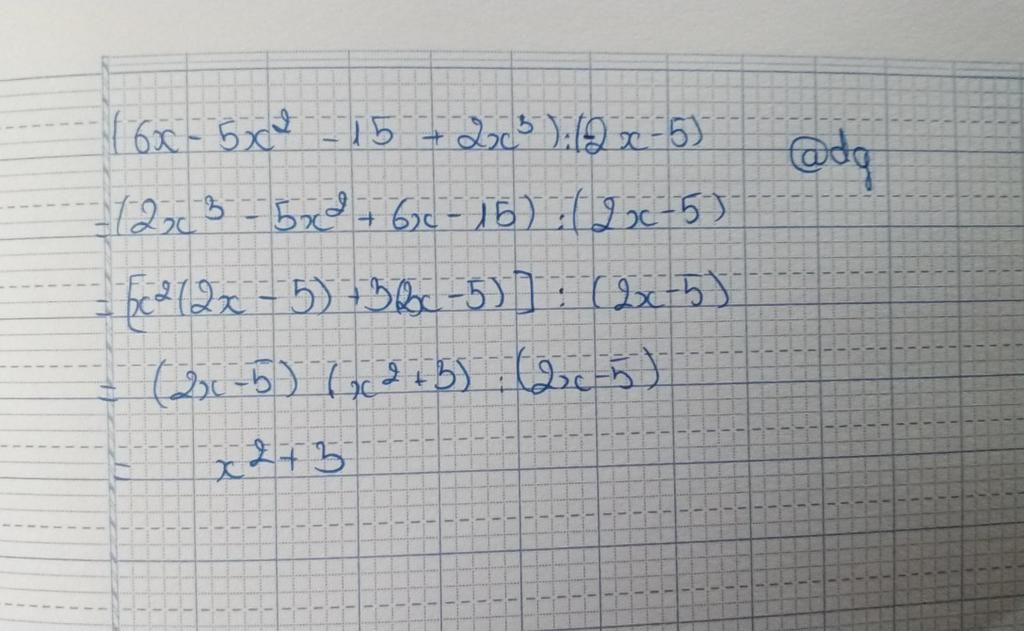 (6x - 5x² - 15 + 2x³) : (2x - 5) @dq
= (2x³ - 5x² + 6x - 15) : (2x - 5)
= [x²(2x - 5) + 3(2x - 5)] : (2x - 5)
= (2x - 5) (x² + 3) : (2x - 5)
= x² + 3